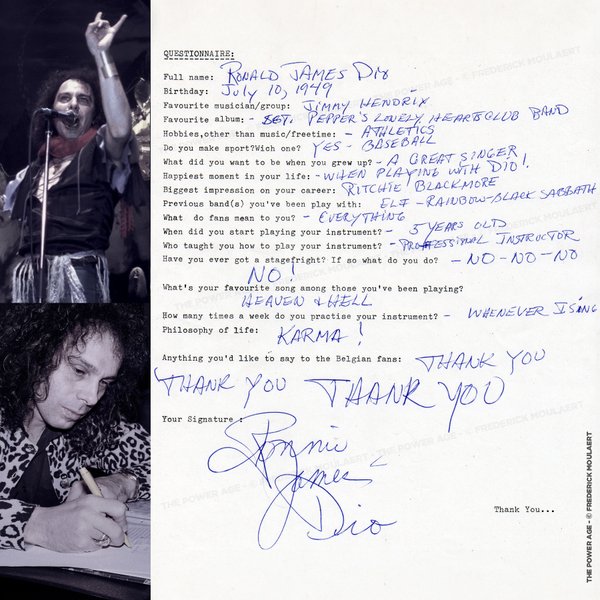 QUESTIONNAIRE:
Full name: RONALD JAMES DIO
Birthday: JULY 10, 1949
Favourite musician/group: JIMMY HENDRIX
Favourite album: - SGT. PEPPER'S LOVELY HEARTSCLUB BAND
Hobbies,other than music/freetime: - ATHLETICS
Do you make sport?Wich one? YES - BASEBALL
What did you want to be when you grew up? - A GREAT SINGER
Happiest moment in your life: - WHEN PLAYING WITH DIO!
Biggest impression on your career: RITCHIE BLACKMORE
Previous band(s) you've been play with: ELF - RAINBOW-BLACK SABBATH
What do fans mean to you? - EVERYTHING
When did you start playing your instrument? - 5 YEARS OLD
Who taught you how to play your instrument? - PROFESSIONAL INSTRUCTOR
Have you ever got a stagefright? If so what do you do? - NO - NO - NO
NO!
What's your favourite song among those you've been playing?
HEAVEN & HELL
How many times a week do you practise your instrument? - WHENEVER I SING
Philosophy of life: KARMA!
Anything you'd like to say to the Belgian fans: THANK YOU
THANK YOU THANK YOU
Your Signature :
Ronnie
James
Dio
Thank You...
THE POWER AGE - © FREDERICK MOULAERT